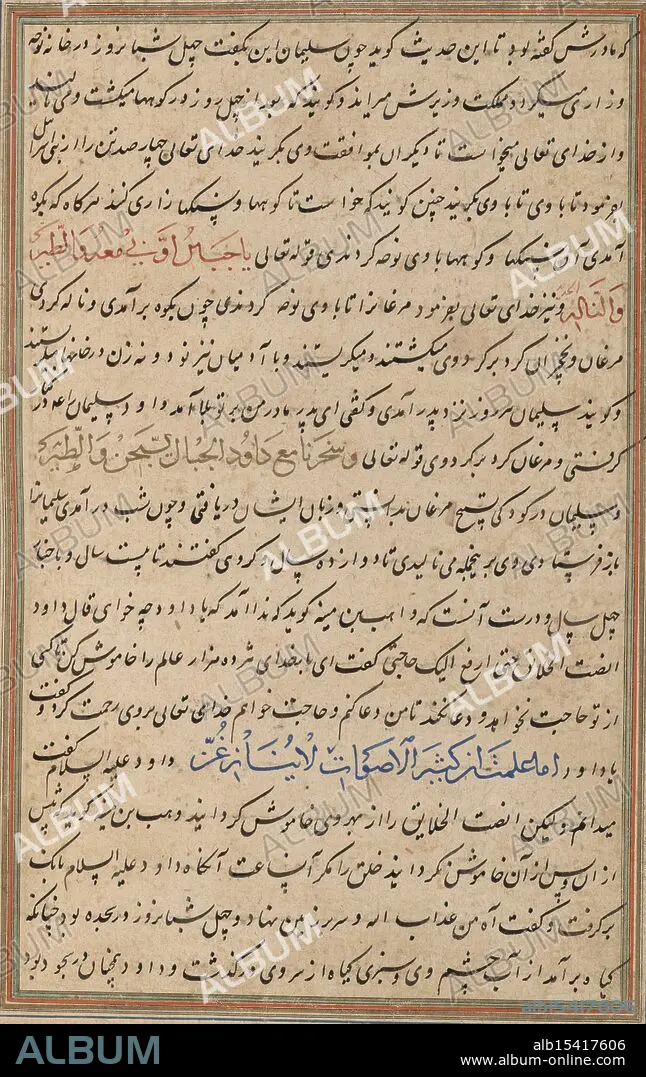 که مادرش گفته بود تا این حدیث گوید چون سلیمان این بگفت چهل شبانروز در خانه نوحه
و زاری میکرد و مملکت وزیرش میراند و گویند که بعد از چهل روز در کوهها میگشت و می نالید
و از خدای تعالی میخواست تا دیگران بموافقت وی بگریند خدای تعالی چهار صد تن را از بنی اسرائیل
بفرمود تا با وی بگریند چنین گویند که خواست تا کوهها و سنگها زاری کنند هرگاه که بکوه
آمدی آن سنگها و کوهها با وی نوحه کردندی قوله تعالی یا جبال اوبی معه والطیر
والنا له الحدید و نیز خدای تعالی بفرمود مرغانرا تا با وی نوحه کردندی چون بکوه برآمدی و ناله کردی
مرغان و نخچیران گرد برگرد وی میگشتند و میگریستند و با آدمیان نیز نود و نه زن در خانها میگریستند
و گویند سلیمان هر روز نزد پدر آمدی و گفتی ای پدر مادر من بر تو بلا آمد داود سلیمان را در کنار
گرفتی و مرغان گرد برگرد وی قوله تعالی و سخرنا مع داود الجبال یسبحن والطیر
و سلیمان در کودکی تسبیح مرغان بدانستی و زبان ایشان دریافتی و چون شب درآمدی سلیمانرا
باز فرستادی وی برینجمله می نالیدی تا دوازده سال و گروهی گفتند تا بیست سال و باخبار
چهل سال و درست آنست که وهب بن منبه گوید که ندا آمد که یا داود چه خواهی قال داود
انصت الخلایق حتی ارفع الیک حاجتی گفت ای بار خدای هژده هزار عالم را خاموش کن تا کسی
از تو حاجت نخواهد و دعا نکند تا من دعا کنم و حاجت خواهم خدای تعالی بروی رحمت کرد و گفت
یا داود اما علمت ان کثیر الاصوات لا یشغلنی داود علیه السلام گفت
میدانم ولیکن انصت الخلایق را از بهر وی خاموش گردانیدند وهب بن منبه گوید که پیش
از آن و پس از آن خاموش نگردانیدند خلق را مگر آن ساعت آنگاه داود علیه السلام بانگ
برگرفت و گفت آه من عذاب الله و سر بر زمین نهاد و چهل شبانروز در سجده بود چنانکه
گیاه برآمد از آب چشم وی و سبزی گیاه از سر وی درگذشت و داود همچنان در سجود بود
ALBUM
alb15417606
www.album-online.com